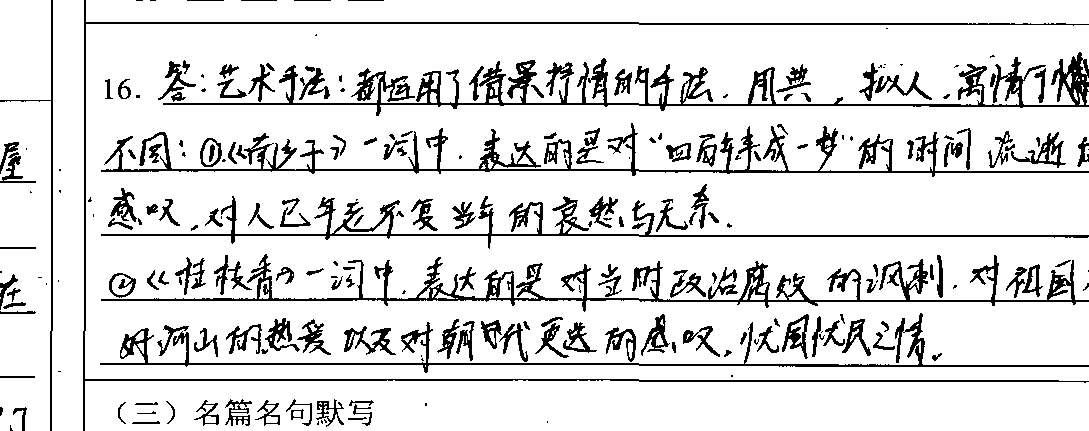 屋
在
16. 答:艺术手法:都运用了借景抒情的手法. 用典, 拟人, 寓情于
不同:①《南乡子》一词中. 表达的是对“四百年来成一梦”的时间流逝
感叹,对人已年老不复当年的哀愁与无奈.
②《桂枝香》一词中. 表达的是对当时政治腐败的讽刺. 对祖国
好河山的热爱以及对朝代更迭的感叹,忧国忧民之情。
(三)名篇名句默写